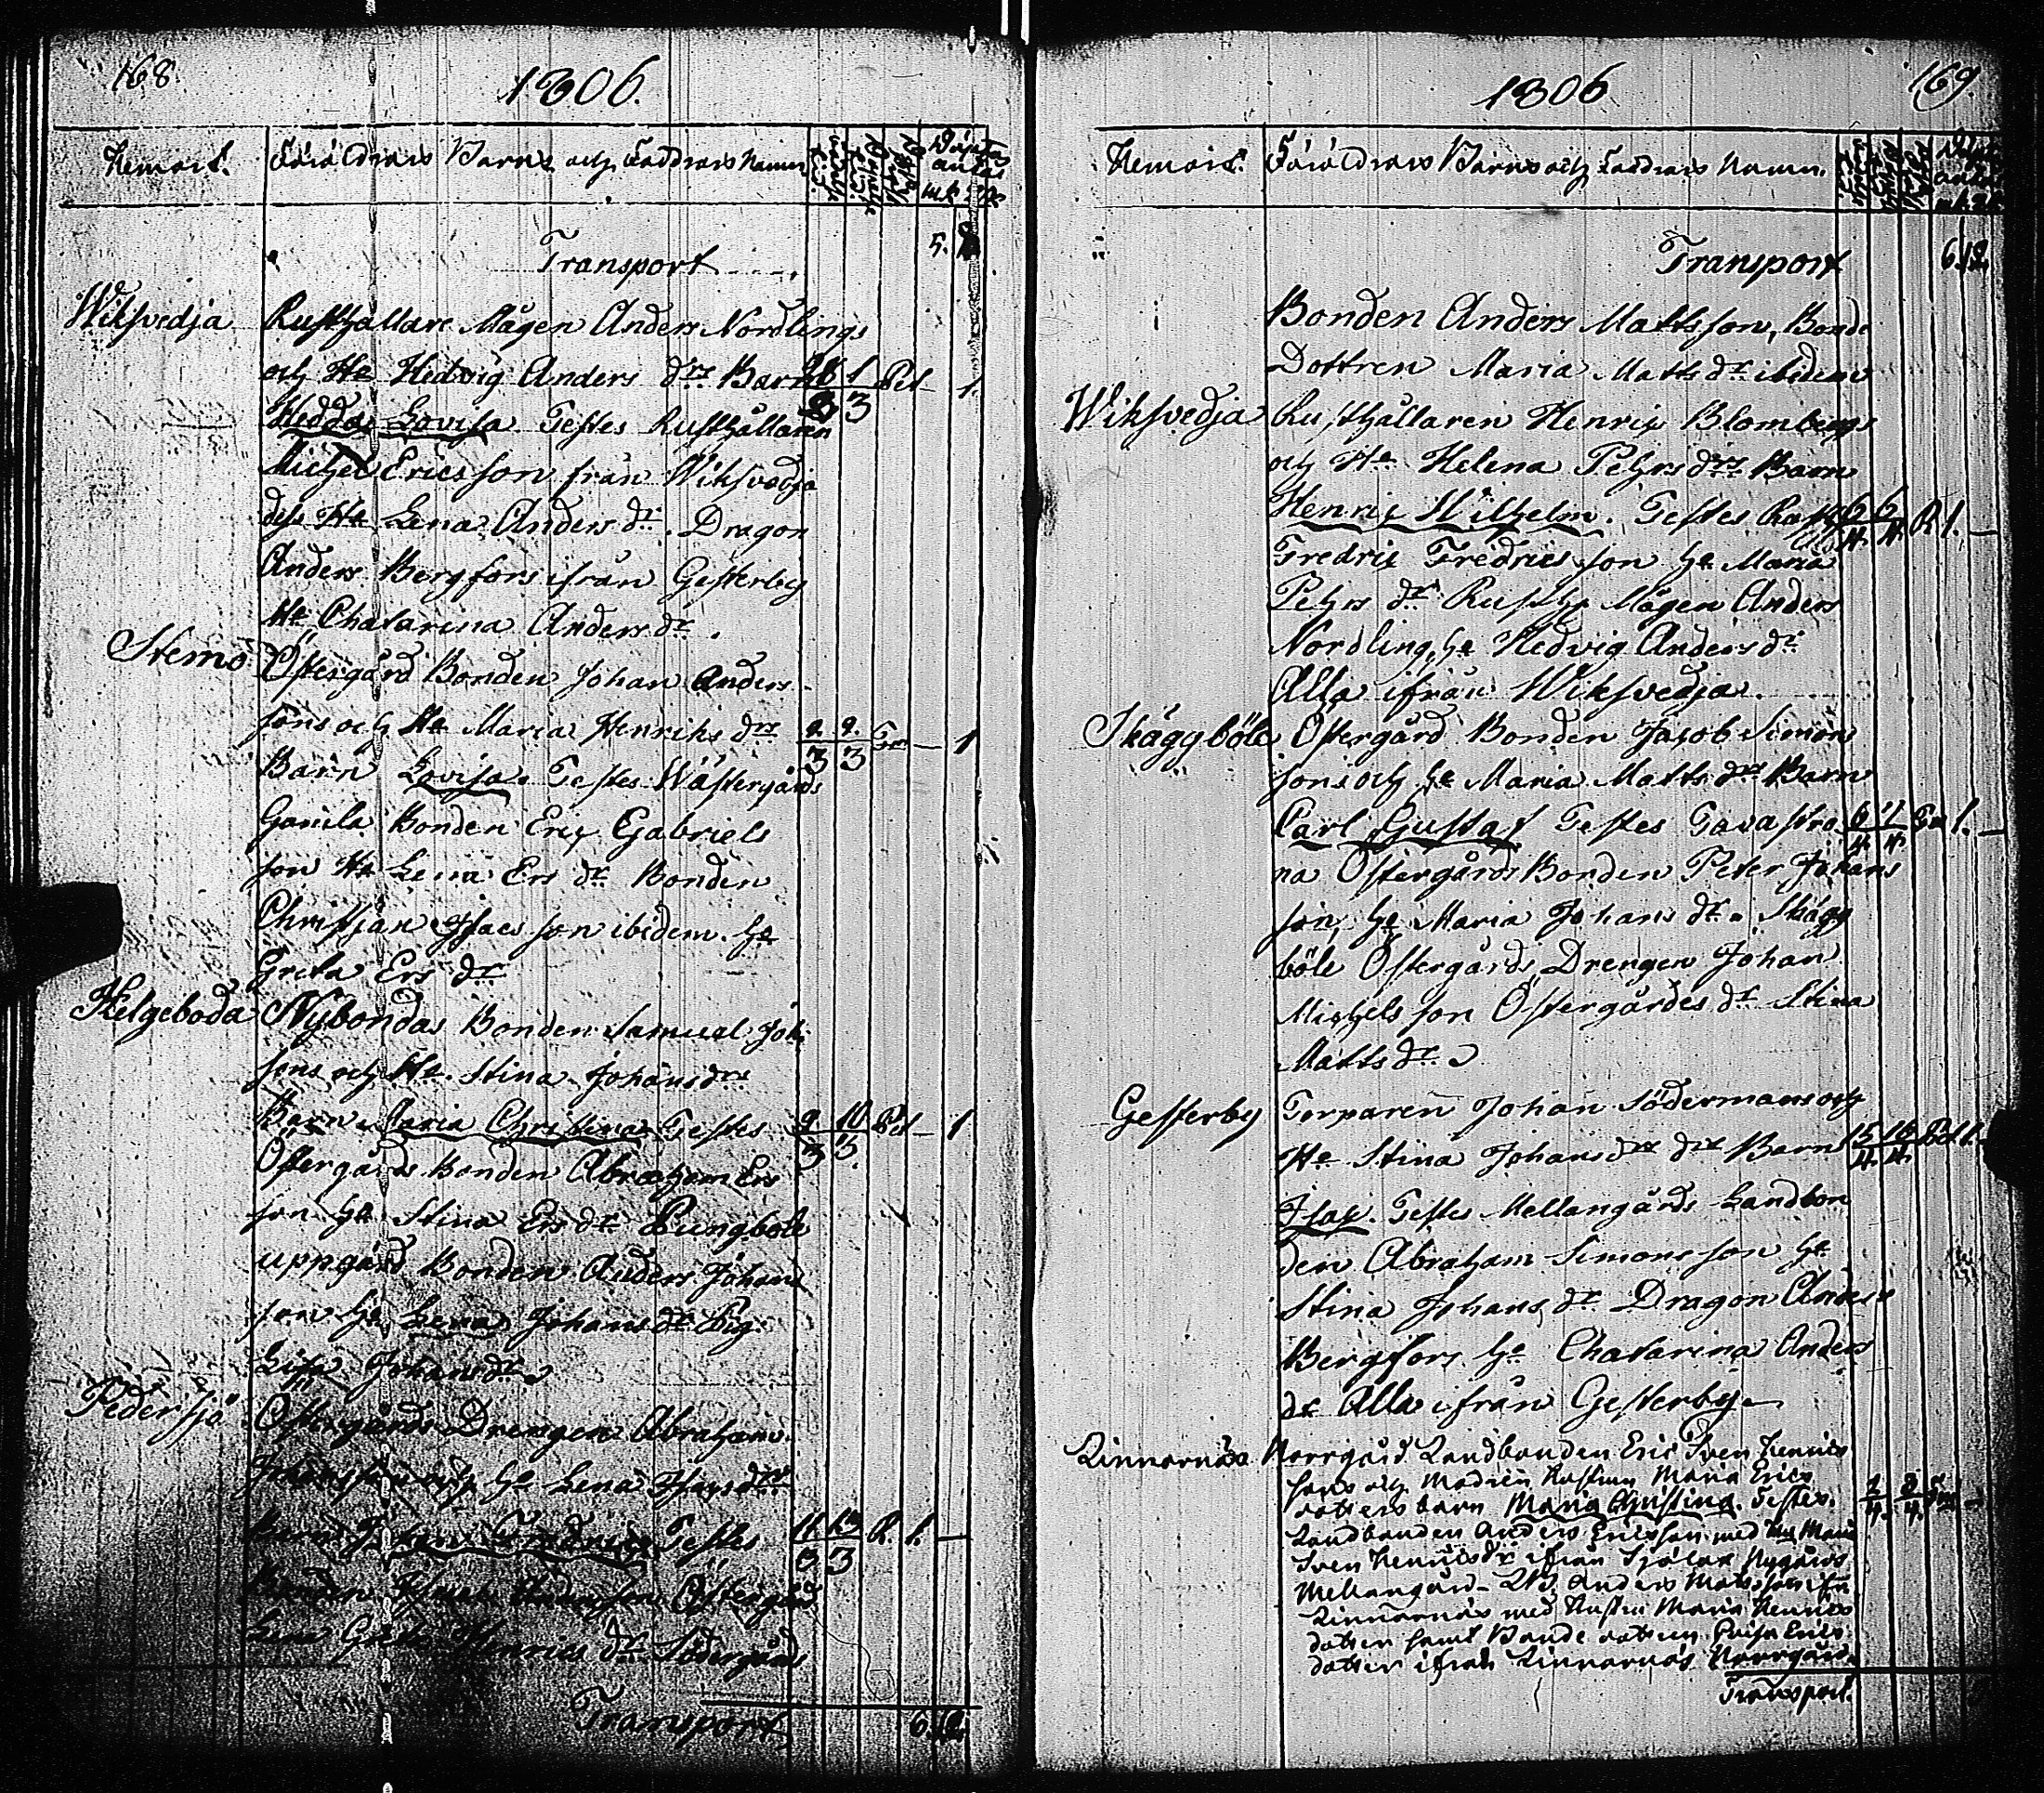 168.
1806.
Hemort. Föräldrars Barns och Faddrars Namn
mk
Transport 5.
Wiksvedja Rusthållare Mågen Anders Nordlings
och Ha Hedvig Anders drs Barn 28 1 Pet 1.
2 3
Hedda Lovisa Testes Rusthållaren
Michel Ericsson från Wiksvedja
dess Ha Lena Anders dr. Dragon
Anders Bergfors ifrån Gesterby
Ha Chatarina Anders dr.
Stemo Östergård Bonden Johan Anders
sons och Ha Maria Henriks drs 2. 9. 1
3 3
Barn Lovisa. Testes Wästergårds
Bonden Eric Gabriels
son Ha Lena Ers dr Bonden
Christian Isacsson ibidem. ha
Greta Ers dr
Helgeboda Nybondas Bonden Samuel Joh
sons och Ha. Stina Johans drs
Barn Maria Christina Testes 9 10 Pet 1
3 3.
Östergårds Bonden Abraham Ers
son ha Stina Ers dr Pungböle
uppgård Bonden Anders Johans
son ha Lena Johans dr Pig
Lisa Johans dr
Pedersjö Östergårds Drengen Abraham
Johanssons och ha Lena Isacs drs
Barn Johan Fredric Testes 11 13 R. 1. —
3 3
Bonden Andersson Östergård
Greta Henrics dr Södergårds
Transport 6 12
1806
169.
Hemort. Föräldrars Barns och Faddrars Namn.
Transport 6.12.
Bonden Anders Mattsson, Bonde
Dottren Maria Matts dr ibidem
Wiksvedja Rusthållaren Henric Blombergs
och Ha Helena Pehrs drs Barn
Henric Wilhelm. Testes Rusth 5 6 R 1. —
4. 4.
Fredric Fredricsson ha Maria
Pehrs dr Rusth Mågen Anders
Nordling, ha Hedvig Anders dr
Alla ifrån Wiksvedja.
Skäggböle Östergård Bonden Jacob Simons
sons och ha Maria Matts drs Barn
Carl Gustaf Testes Tavastra 6 7 1. —
4. 4.
na Östergårds Bonden Peter Johans
son, ha Maria Johans dr. Skägg
böle Östergårds Drengen Johan
Michelsson Östergårdes dr Stina
Matts dr
Gesterby Torparen Johan Södermans och
Ha Stina Johans drs Barn 15 16 Pet 1.
4. 4.
Isac. Testes Mellangårds Landbon
den Abraham Simonsson ha
Stina Johans dr Dragon Anders
Bergfors ha Chatarina Anders
dr Alla ifrån Gesterby
Linnarnäs Norrgård Landbonden Eric Sven Henrics
sons och Hustrun Maria Erics
dotters barn Maria Christina. Testes. 2 3
4. 4.
Landbonden Anders Ericsson med Maria
Sven Henricsdr ifrån Nygårds
Mellangård. Anders Matsson ifrn
Linnarnäs med Hustru Maria Henrics
dotter samt Bonde dottren Erics
dotter ifrån Linnarnäs Norrgård.
Transport.